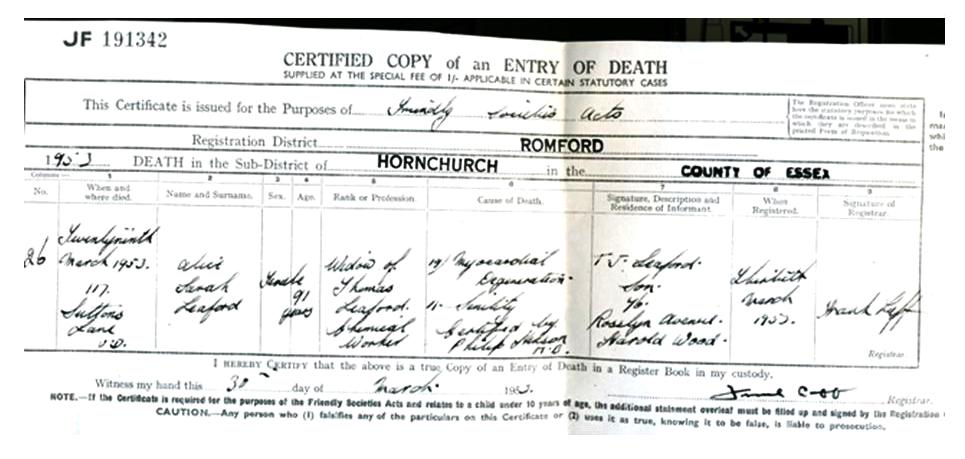 JF 191342
CERTIFIED COPY of an ENTRY OF DEATH
SUPPLIED AT THE SPECIAL FEE OF 1/- APPLICABLE IN CERTAIN STATUTORY CASES
This Certificate is issued for the Purposes of Friendly Societies Acts
The Registration Officer must state here the statutory purposes for which the certificate is issued in the terms in which they are described in the printed Form of Requisition.
Registration District ROMFORD
1953 DEATH in the Sub-District of HORNCHURCH in the COUNTY OF ESSEX
Columns:— 1 2 3 4 5 6 7 8 9
No. When and where died. Name and Surname. Sex. Age. Rank or Profession. Cause of Death. Signature, Description and Residence of Informant. When Registered. Signature of Registrar.
26
Twentyninth
March 1953.
117.
Suttons
Lane
U.D.
Alice
Sarah
Leaford
Female
91
years
Widow of
Thomas
Leaford.
Chemical
Worker
Myocardial
Degeneration.
Senility
Certified by
Philip
M.B.
T J. Leaford.
Son.
46.
Rosslyn Avenue.
Harold Wood.
Thirtieth
March
1953.
Registrar.
I HEREBY CERTIFY that the above is a true Copy of an Entry of Death in a Register Book in my custody.
Witness my hand this 30th day of March. 1953. Registrar.
NOTE.—If the Certificate is required for the purposes of the Friendly Societies Acts and relates to a child under 10 years of age, the additional statement overleaf must be filled up and signed by the Registration
CAUTION.—Any person who (1) falsifies any of the particulars on this Certificate or (2) uses it as true, knowing it to be false, is liable to prosecution.